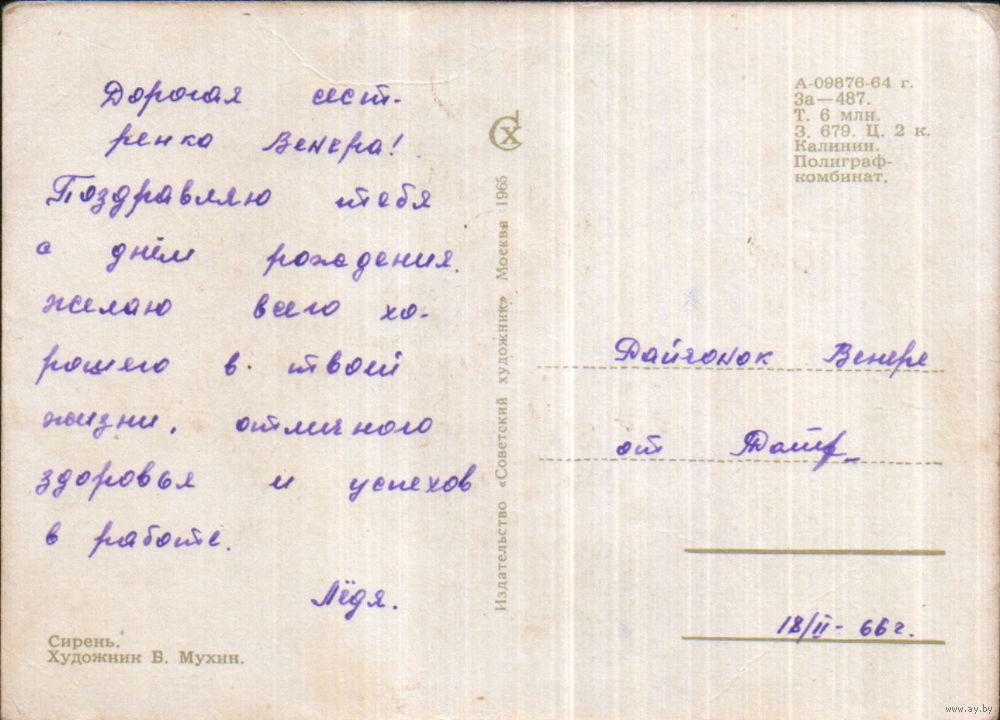 Дорогая сест-
ренка Венера!
Поздравляю тебя
с днём рождения.
желаю всего хо-
рошего в твоей
жизни, отличного
здоровья и успехов
в работе.
Лёдя.
Сирень.
Художник Б. Мухин.
Издательство «Советский художник» Москва 1965
СХ
А-09876-64 г.
За—487.
Т. 6 млн.
З. 679. Ц. 2 к.
Калинин.
Полиграф-
комбинат.
Венере
от
18/II- 66 г.
www.ay.by